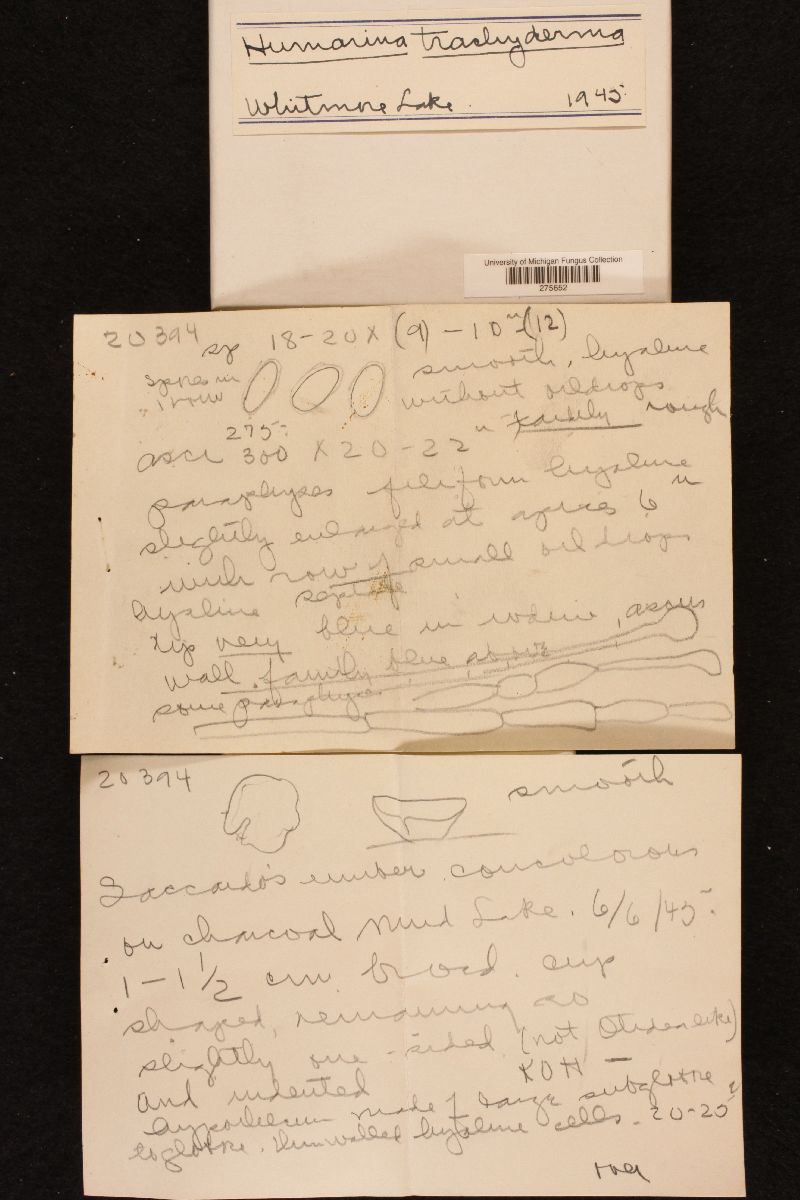 Humarina trachyderma
Whitmore Lake. 1945.
University of Michigan Fungus Collection
275652
20394 sp 18-20 x (9) - 10 u (12)
spores in 1 row smooth, hyaline
without oildrops
275- faintly rough
asci 300 x 20-22 u
paraphyses filiform hyaline
slightly enlarged at apices 6 u
with row of small oil drops
hyaline septate
tip very blue in iodine, ascus
wall faintly blue above
some paraphyses
20394 smooth
Saccardo's umber concolorous
on charcoal Mud Lake. 6/6/45.
1-1 1/2 cm. broad. cup
shaped, remaining so
slightly one-sided (not Otidea like)
and indented KOH -
hypothecium made of large subglobose
to globose. thin walled hyaline cells. 20-25 u